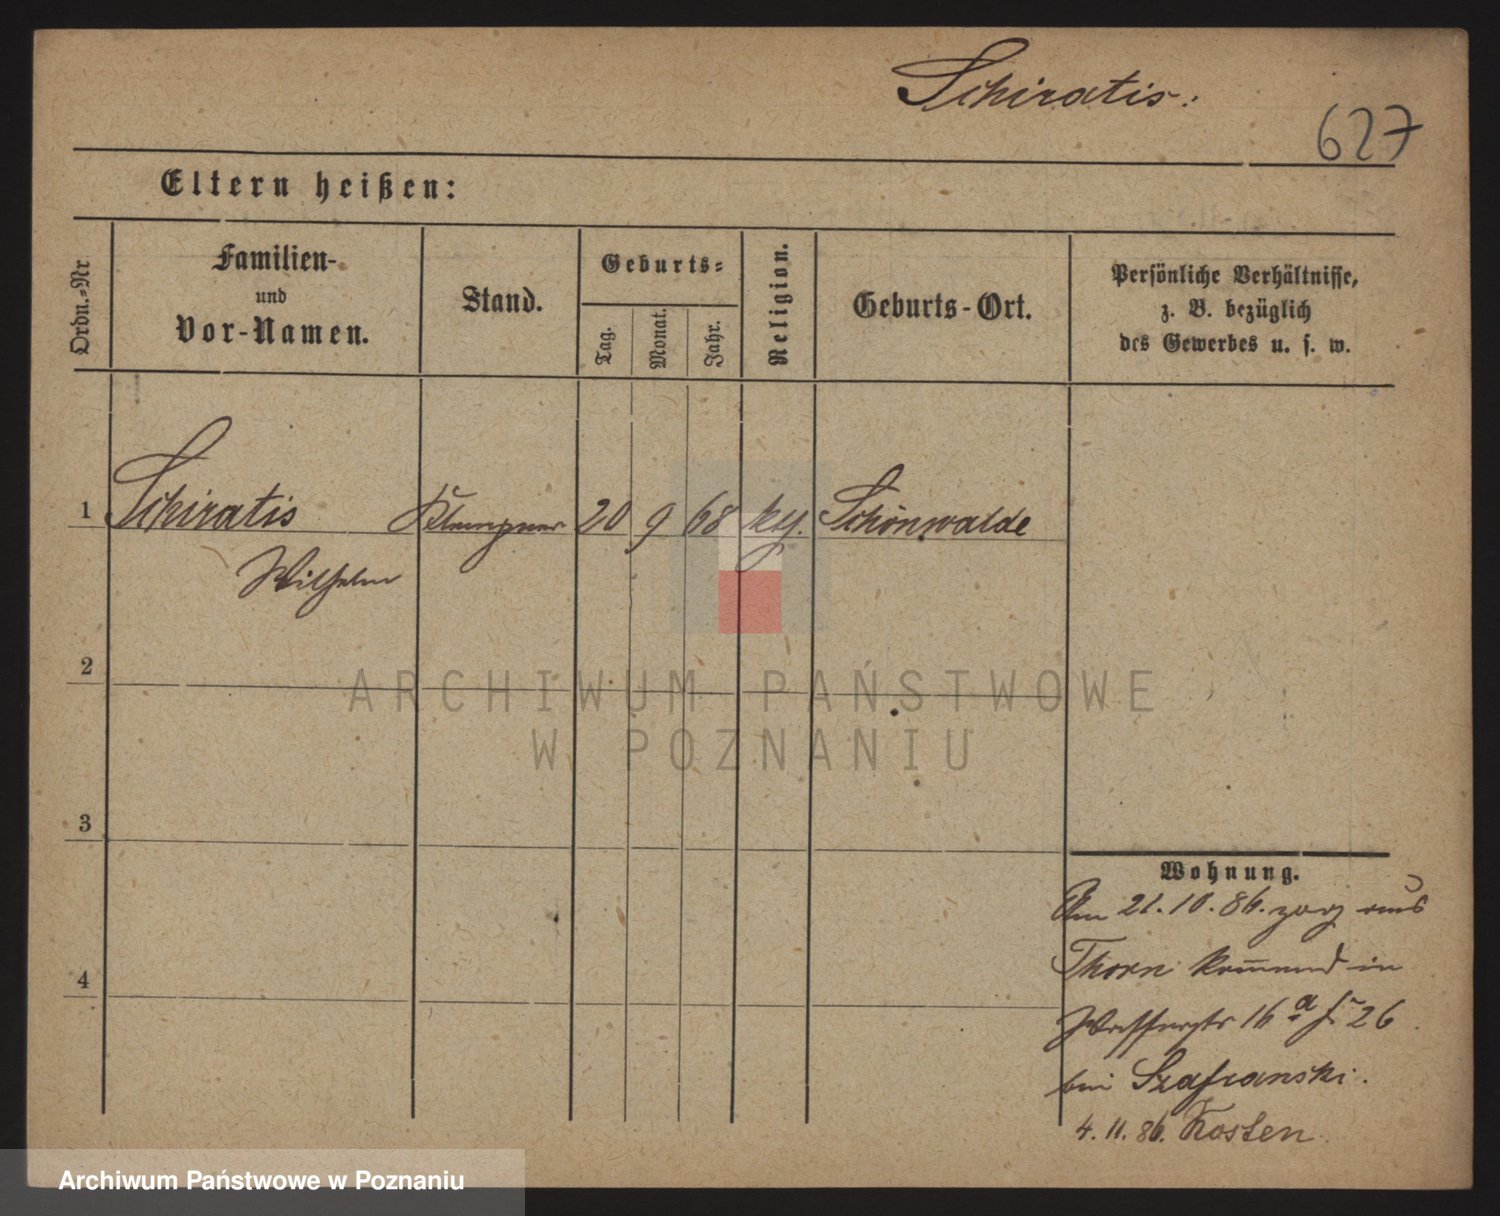 Schiratis.
627
Eltern heißen:
Ordn.=Nr
Familien-
und
Vor-Namen.
Stand.
Geburts=
Tag.
Monat.
Jahr.
Religion.
Geburts-Ort.
Persönliche Verhältnisse,
z. B. bezüglich
des Gewerbes u. s. w.
1 Schiratis Klempner 20 9 68 Schönwalde
Wilhelm
2
3
4
Wohnung.
Am 21.10.86. zog aus
Thorn kommend in
16 a 26
bei Szafranski.
4. 11. 86. Kosten
ARCHIWUM PAŃSTWOWE
W POZNANIU
Archiwum Państwowe w Poznaniu